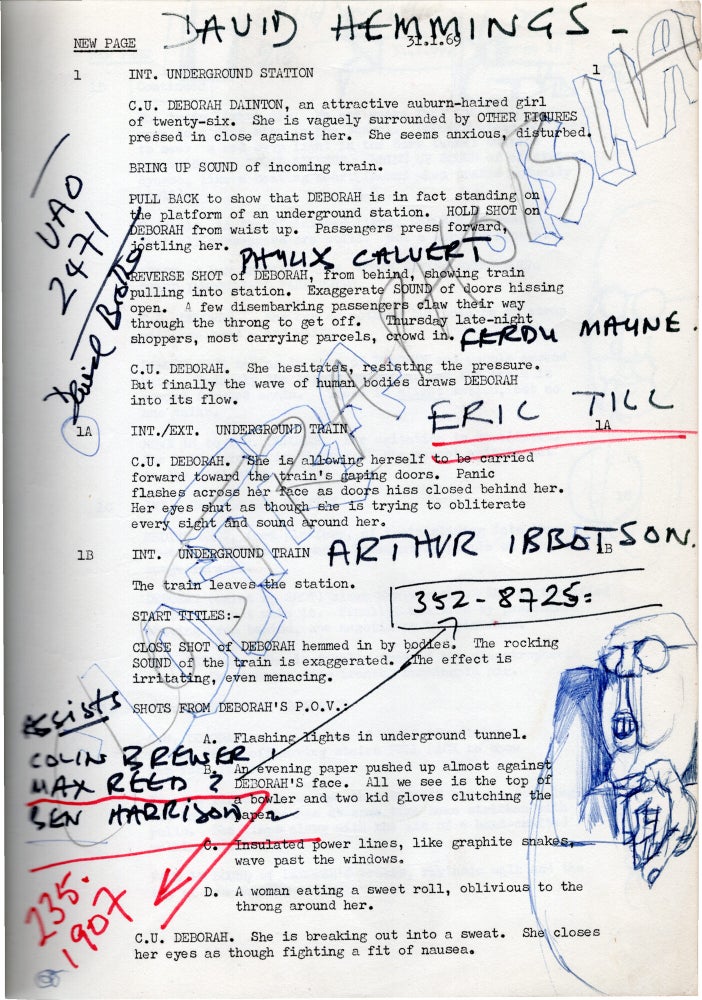 DAVID HEMMINGS -
NEW PAGE 31.1.69
1 INT. UNDERGROUND STATION 1
C.U. DEBORAH DAINTON, an attractive auburn-haired girl
of twenty-six. She is vaguely surrounded by OTHER FIGURES
pressed in close against her. She seems anxious, disturbed.
BRING UP SOUND of incoming train.
PULL BACK to show that DEBORAH is in fact standing on
the platform of an underground station. HOLD SHOT on
DEBORAH from waist up. Passengers press forward,
jostling her.
UAO
2471
David
PHYLIX CALVERT
REVERSE SHOT of DEBORAH, from behind, showing train
pulling into station. Exaggerate SOUND of doors hissing
open. A few disembarking passengers claw their way
through the throng to get off. Thursday late-night
shoppers, most carrying parcels, crowd in.
FERDY MAYNE.
C.U. DEBORAH. She hesitates, resisting the pressure.
But finally the wave of human bodies draws DEBORAH
into its flow.
ERIC TILL
1A INT./EXT. UNDERGROUND TRAIN 1A
C.U. DEBORAH. She is allowing herself to be carried
forward toward the train's gaping doors. Panic
flashes across her face as doors hiss closed behind her.
Her eyes shut as though she is trying to obliterate
every sight and sound around her.
1B INT. UNDERGROUND TRAIN 1B
ARTHUR IBBOTSON.
The train leaves the station.
352-8725:
START TITLES:-
CLOSE SHOT of DEBORAH hemmed in by bodies. The rocking
SOUND of the train is exaggerated. The effect is
irritating, even menacing.
SHOTS FROM DEBORAH'S P.O.V.:
Assists
COLIN BREWER !
MAX REED ?
BEN HARRISON
A. Flashing lights in underground tunnel.
B. An evening paper pushed up almost against
DEBORAH'S face. All we see is the top of
a bowler and two kid gloves clutching the
paper.
C. Insulated power lines, like graphite snakes,
wave past the windows.
D. A woman eating a sweet roll, oblivious to the
throng around her.
235.
1907
C.U. DEBORAH. She is breaking out into a sweat. She closes
her eyes as though fighting a fit of nausea.